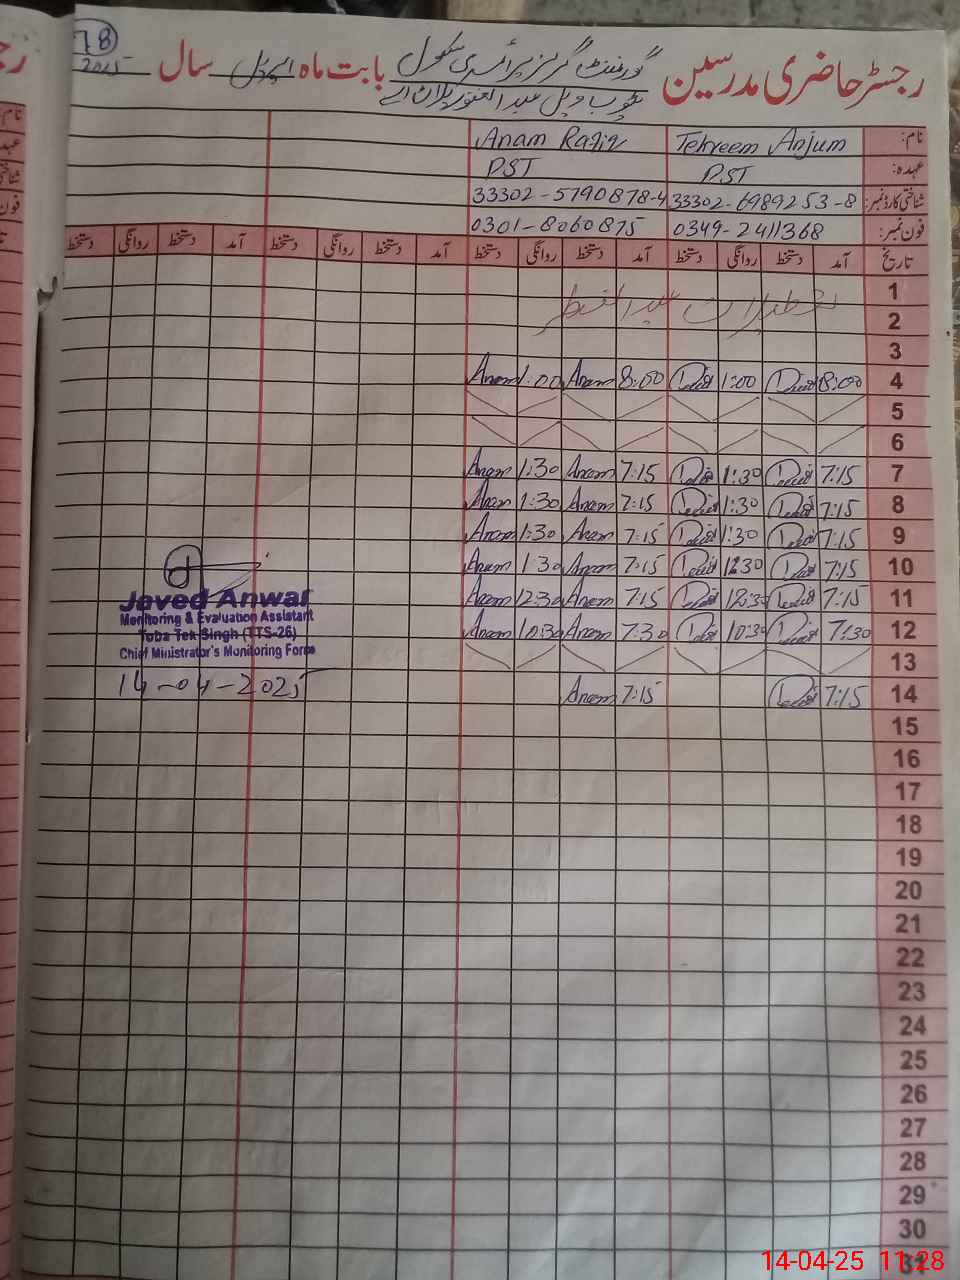 78
رجسٹر حاضری مدرسین گورنمنٹ گرلز پرائمری سکول بابت ماہ اپریل سال 2025
نام: Tehreem Anjum Anam Rafiq
عہدہ: PST PST
شناختی کارڈ نمبر: 33302-6989253-8 33302-5790878-4
فون نمبر: 0349-2411368 0301-8060875
تاریخ آمد دستخط روانگی دستخط آمد دستخط روانگی دستخط آمد دستخط روانگی دستخط آمد دستخط روانگی دستخط
1 تعطیلات عیدالفطر
2
3
4 8:00 1:00 8:00 Anam 1:00 Anam
5
6
7 7:15 1:30 7:15 Anam 1:30 Anam
8 7:15 1:30 7:15 Anam 1:30 Anam
9 7:15 1:30 7:15 Anam 1:30 Anam
10 7:15 12:30 7:15 Anam 1:30 Anam
11 7:15 12:30 7:15 Anam 12:30 Anam
12 7:30 10:30 7:30 Anam 10:30 Anam
13
14 7:15 7:15 Anam
15
16
17
18
19
20
21
22
23
24
25
26
27
28
29
30
31
Javed Anwar
Monitoring & Evaluation Assistant
Toba Tek Singh (TTS-26)
Chief Ministrator's Monitoring Force
14-04-2025
14-04-25 11:28